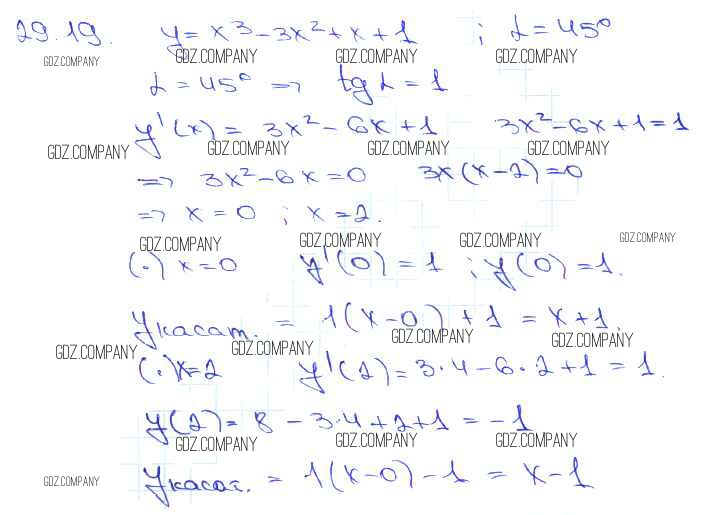 29.19. y = x³ - 3x² + x + 1 ; α = 45°
GDZ.COMPANY GDZ.COMPANY GDZ.COMPANY GDZ.COMPANY
α = 45° => tg α = 1
y'(x) = 3x² - 6x + 1 3x² - 6x + 1 = 1
GDZ.COMPANY GDZ.COMPANY GDZ.COMPANY GDZ.COMPANY
=> 3x² - 6x = 0 3x(x - 2) = 0
=> x = 0 ; x = 2.
GDZ.COMPANY GDZ.COMPANY GDZ.COMPANY GDZ.COMPANY
(·) x = 0 y'(0) = 1 ; y(0) = 1.
yкасат. = 1(x - 0) + 1 = x + 1.
GDZ.COMPANY GDZ.COMPANY GDZ.COMPANY GDZ.COMPANY
(·) x = 2 y'(2) = 3·4 - 6·2 + 1 = 1.
y(2) = 8 - 3·4 + 2 + 1 = -1
GDZ.COMPANY GDZ.COMPANY GDZ.COMPANY
yкасат. = 1(x - 0) - 1 = x - 1
GDZ.COMPANY GDZ.COMPANY GDZ.COMPANY GDZ.COMPANY